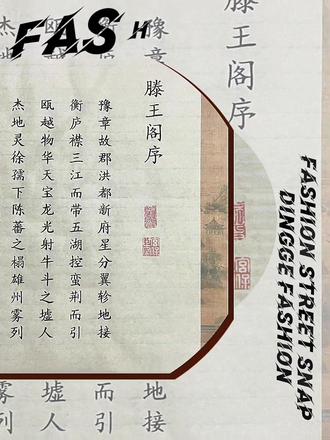 FASH
滕王阁序
豫章故郡洪都新府星分翼轸地接
衡庐襟三江而带五湖控蛮荆而引
瓯越物华天宝龙光射牛斗之墟人
杰地灵徐孺下陈蕃之榻雄州雾列
滕王阁序
豫章
地接
而引
墟人
雾列
FASHION STREET SNAP
DINGGE FASHION